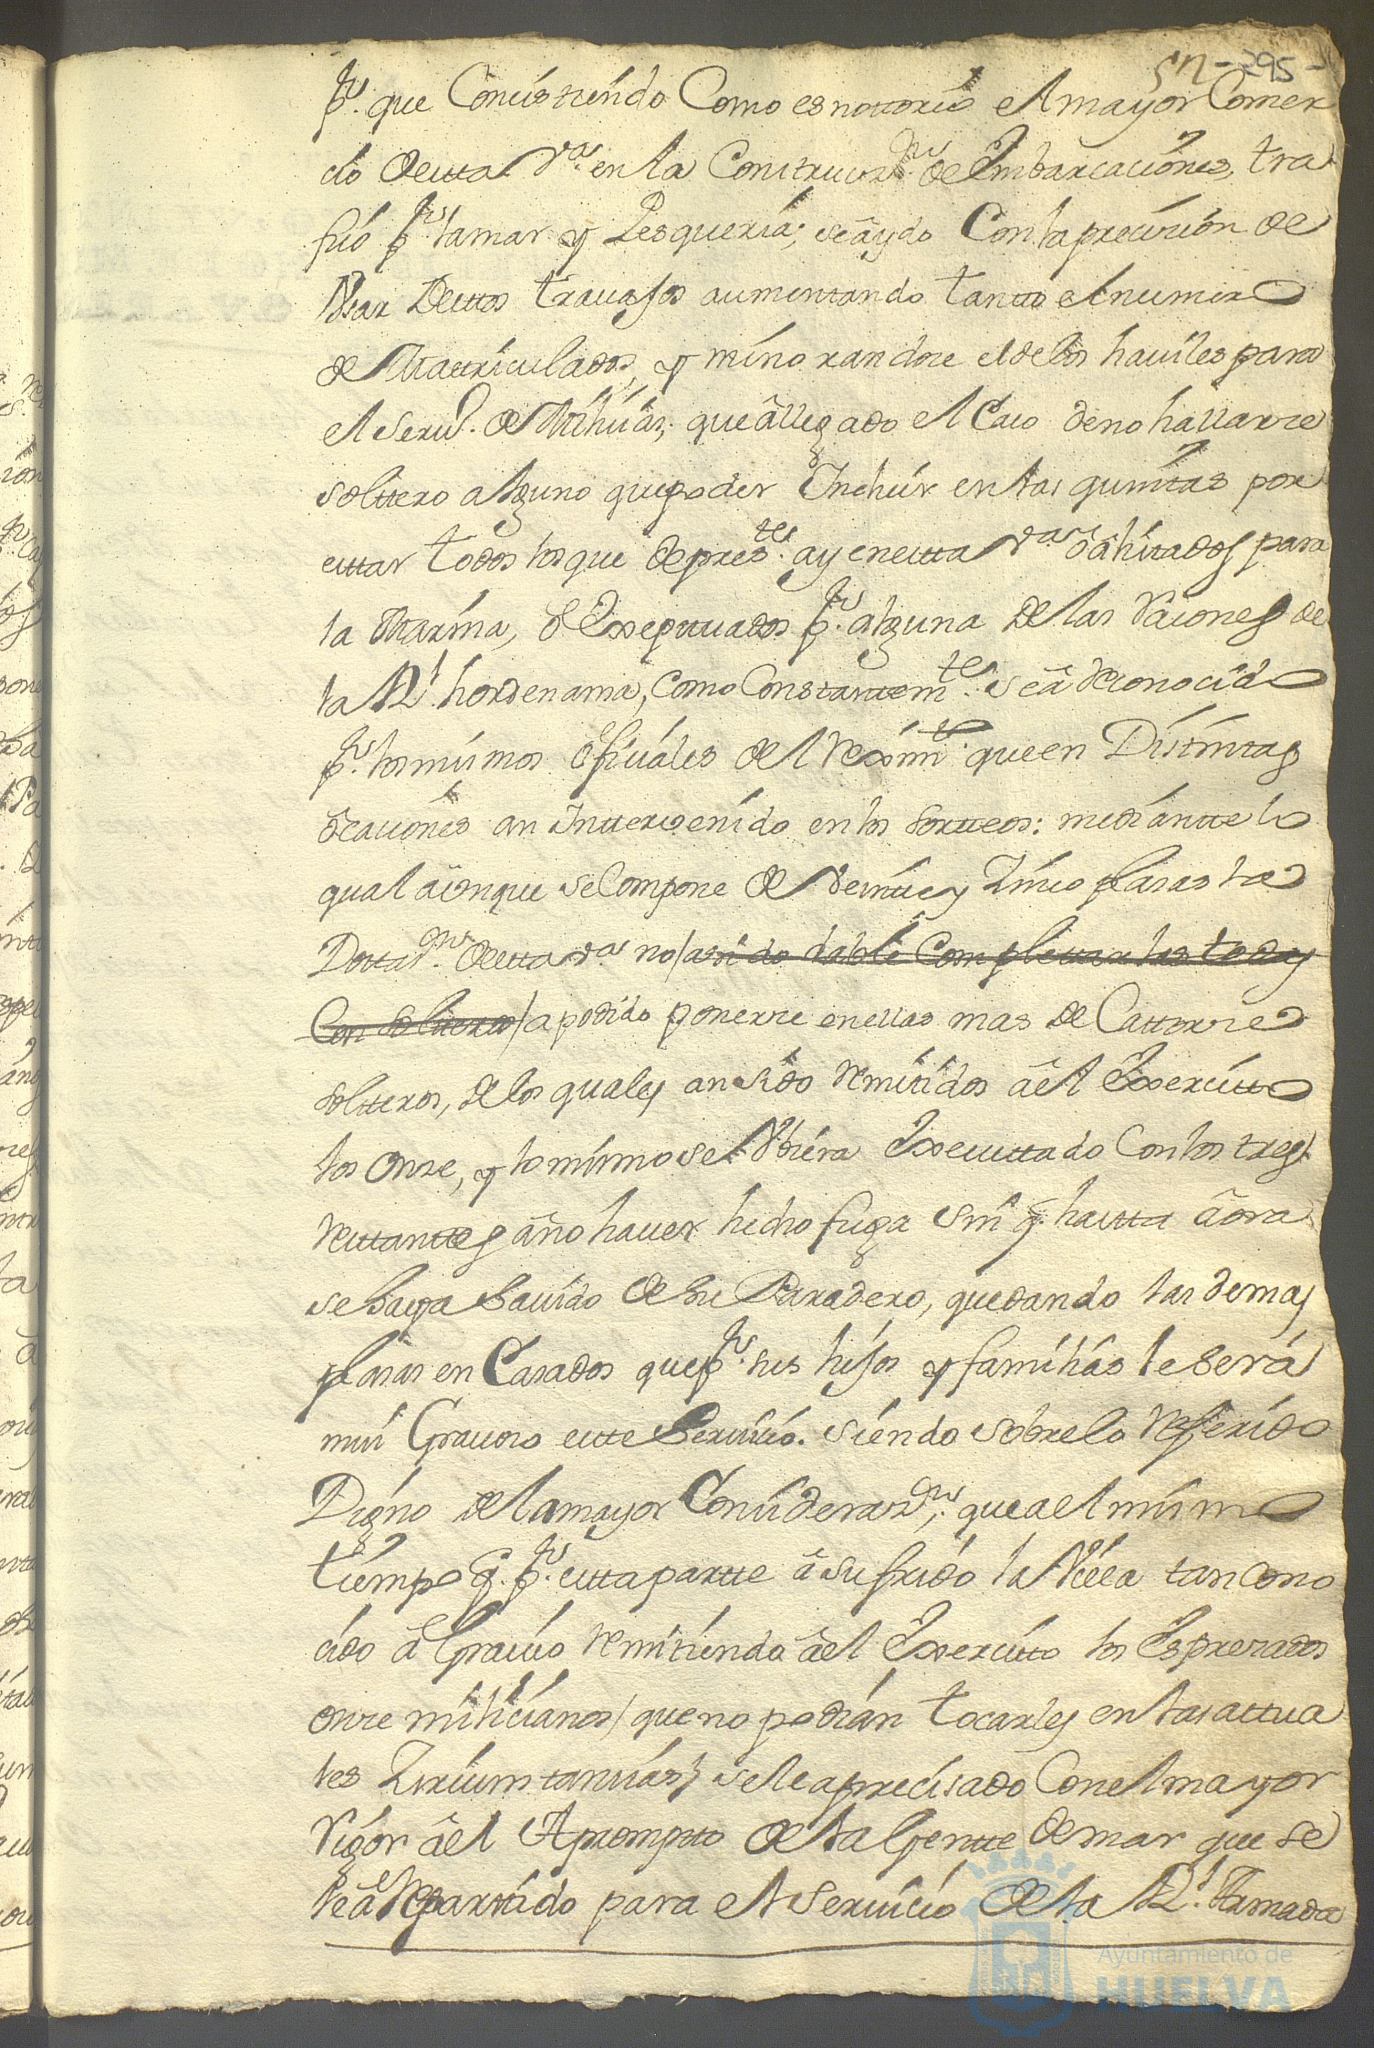 sn - 295 -
pr. que Concistiendo Como es nottorio el mayor Comer
cio de esta Va. en la Construcon. de Embarcaciones, tra
fico pr. la mar y Pesqueria; se â ydo Con la precision de
Usar Destos travajos aumentando tanto el numero
de Matriculados, y minorandose el de los haviles para
el Servo. de Milicias; que â llegado el Caso de no hallarse
soltero alguno que poder Incluir en las quintas por
estar todos los que de presste. ay en esta Va. o âlistados para
la Marina, o Exseptuados pr. alguna de las Raciones de
la Rl. hordenansa, Como Constantemte. se â reconocido
pr. los mismos ofisiales del reximto. que en Distintas
ôcaciones an Intterbenido en los Sortteos: mediantte lo
qual âunque se Compone de veinte y Zinco plasas la
Dotazn. de esta Va. no /a sido dable Complettarlas todas
Con solteros/ a podido ponerse en ellas mas de Cattorse
soltteros, de los quales an sido remitidos âel Exsercitto
los onse, y lo mismo se Ubiera Exsecuttado Con los tres
restanttes â no haver hecho fuga sin q. hasta âora
se haya Savido de su Paradero, quedando las demas
plasas en Casados que pr. sus hijos y familias le será
mui Gravoso este Servicio. siendo sobre lo referido
Digno de la mayor Considerazn., que a el mismo
tiempo q. pr. esta partte â sufrido la Villa tan Cono
cido âGravio remitiendo âel Exsercito los Espresados
onse milicianos / que no podian tocarles en las actua
les Zircumstancias / se le a precisado Con el mayor
rigor âel Apromptto de la Gentte de mar que se
le â repartido para el Servicio de la Rl. Armada
Ayuntamiento de
HUELVA